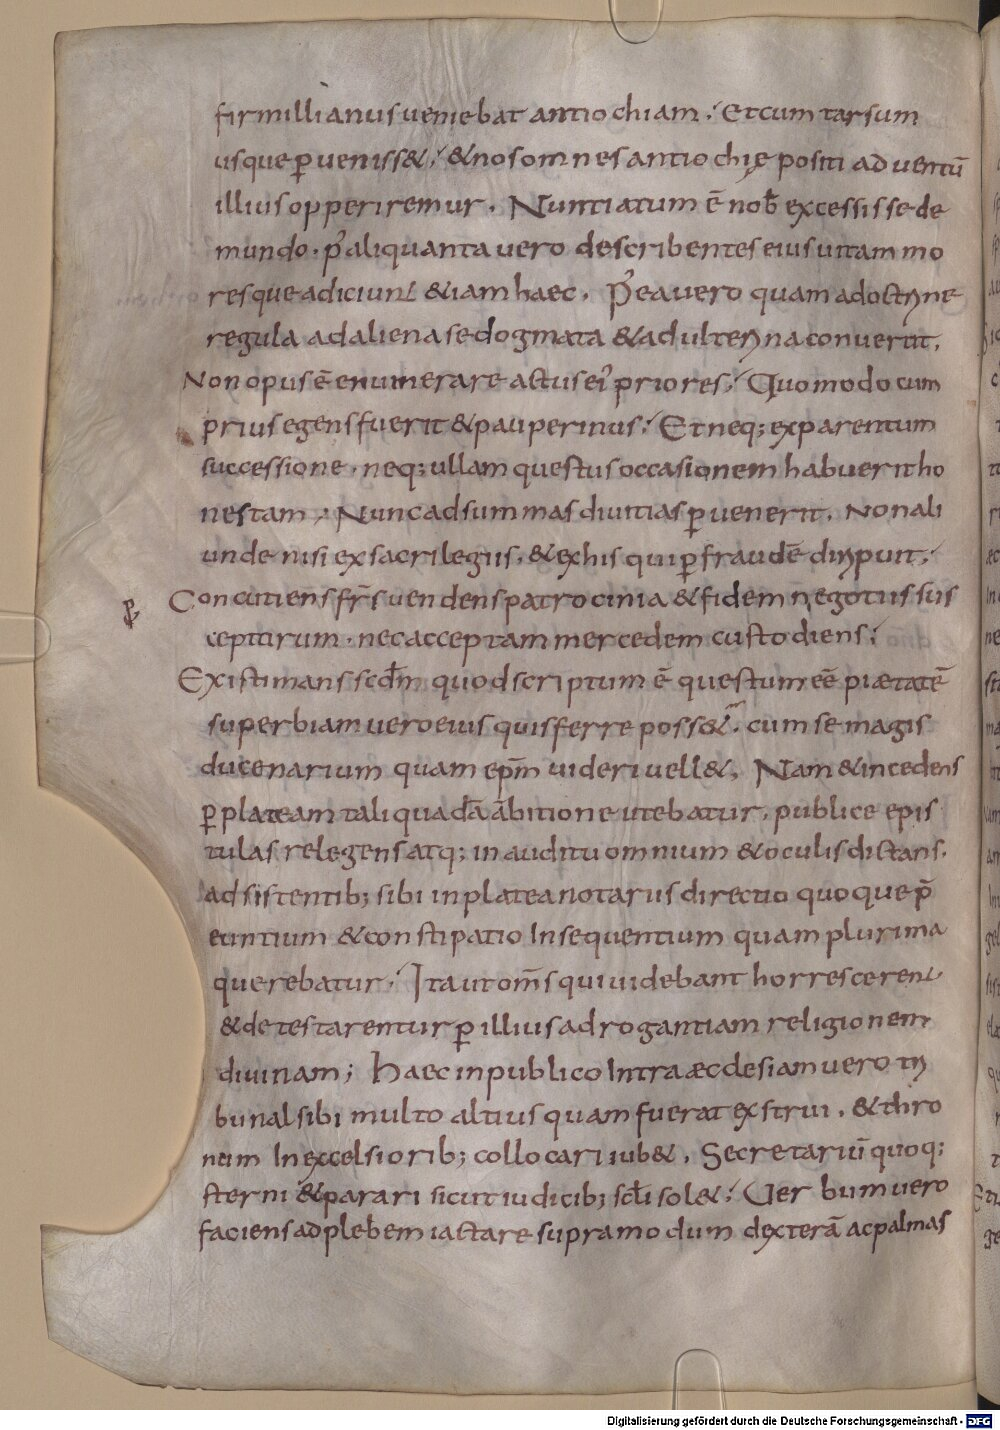 firmillianus veniebat antiochiam. Et cum tarsum
usque ꝑuenisset; & nos omnes antiochię positi aduentū
illius opperiremur. Nuntiatum ē nob̄ excessisse de
mundo. p̄ aliquanta uero describentes eius uitam mo
resque adiciunt &iam haec. Posteauero quam adoctrine
regula ad alienase dogmata & adulterina conuertit.
Non opus ē enumerare actus ei' priores. Quomodo cum
prius egens fuerit & pauperinus. Et neq; exparentum
successione. neq; ullam questus occasionem habuerit ho
nestam, Nunc ad summas diuitias ꝑuenerit. Non ali
unde nisi exsacrilegiis. & exhis qui ꝑ fraudē diripuit.
Concutiens fr̄s uendens patrocinia & fidem n̄ negotiis sus
ceptirum. nec acceptam mercedem custodiens;
Existimans scd̄m quod scriptum ē questum eē piætatē
superbiam uero eius quis ferre poss&. cum se magis
ducenarium quam ep̄m uideri uell&. Nam & incedens
ꝑ plateam tali quadā ābitione utebatur. publice epis
tulas relegens atq; in auditu omnium & oculis dictans.
adsistentib; sibi in platea notarus directio quoque p̄
euntium & constipatio Insequentium quam plurima
querebatur. Ita ut om̄s qui uidebant horrescerent
& detestarentur ꝑ illius adrogantiam religionem
diuinam; Haec in publico Intra æcclesiam uero tri
bunal sibi multo altius quam fuerat exstrui. & thro
num In excelsiorib; collocari iub&. Secretariū quoq;
sterni & parari sicut iudicib; scl̄i sol&; Uerbum uero
faciens ad plebem iactare supra modum dexterā ac palmas
Digitalisierung gefördert durch die Deutsche Forschungsgemeinschaft - DFG